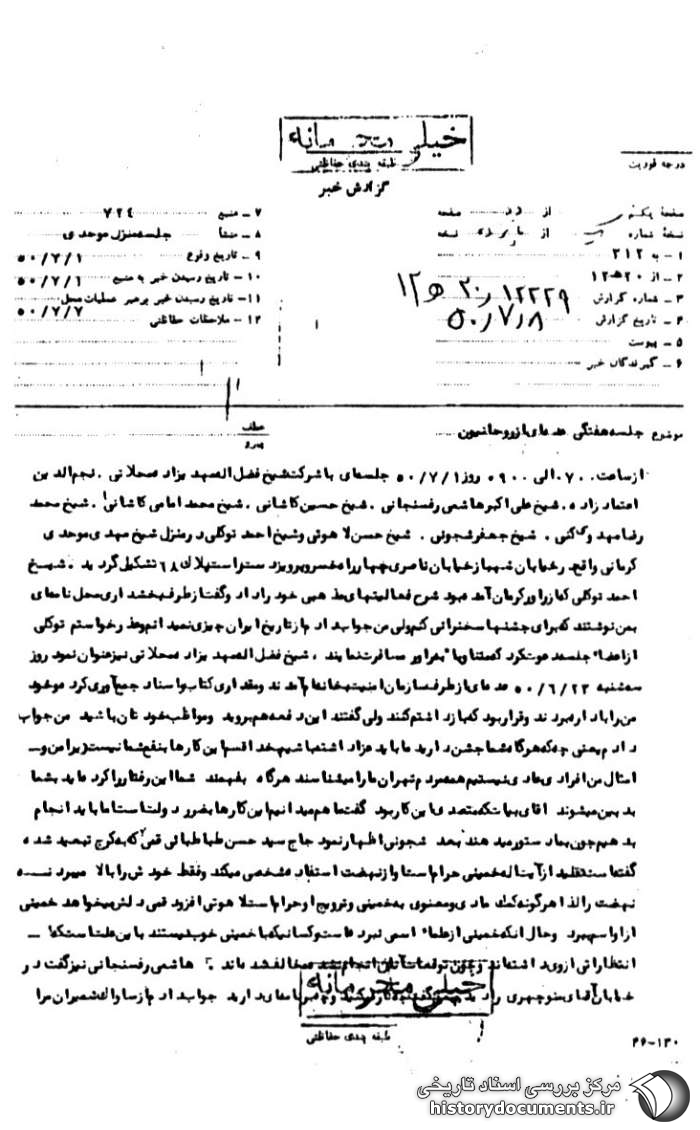 خیلی محرمانه
طبقه بندی حفاظتی
گزارش خبر
درجه فوریت
صفحه یکم از دو صفحه
نسخه شماره از نسخه
۱ - به ۳۱۲
۲ - از ۲۰ هـ ۱۲
۳ - شماره گزارش ۱۲۲۲۹ / ۲۰ هـ ۱۲
۴ - تاریخ گزارش ۵۰/۷/۸
۵ - پیوست
۶ - گیرندگان خبر
۷ - منبع ۷۲۴
۸ - منشأ جلسه منزل موحدی
۹ - تاریخ وقوع ۵۰/۷/۱
۱۰ - تاریخ رسیدن خبر به منبع ۵۰/۷/۱
۱۱ - تاریخ رسیدن خبر برهبر عملیات محل ۵۰/۷/۷
۱۲ - ملاحظات حفاظتی
موضوع جلسه هفتگی عده‌ای از روحانیون
عطف
پیرو
از ساعت ۰۷۰۰ الی ۰۹۰۰ روز ۵۰/۷/۱ جلسه‌ای با شرکت شیخ فضل اله مهدیزاده محلاتی . نجم الدین
اعتمادزاده ، شیخ علی اکبر هاشمی رفسنجانی . شیخ حسین کاشانی . شیخ محمد امامی کاشانی . شیخ محمد
رضا مهدوی کنی . شیخ جعفر شجونی . شیخ حسن لاهوتی و شیخ احمد توکلی در منزل شیخ مهدی موحدی
کرمانی واقع در خیابان شهباز خیابان ناصری چهارراه خسرو پرویز دست راست پلاک ۶۸ تشکیل گردید . شیخ
احمد توکلی که از راور کرمان آمده بود شرح فعالیتهای مذهبی خود را داد و گفت از طرف بخشداری محل نامه‌ای
بمن نوشتند که برای جشنها سخنرانی کنم ولی من جواب دادم از تاریخ ایران چیزی نمیدانم و طرد خواستم توکلی
از اعضاء جلسه دعوت کرد که ملتا وبا براور مسافرت نمایند . شیخ فضل اله مهدیزاده محلاتی نیز عنوان نمود روز
سه‌شنبه ۵۰/۶/۲۳ عده‌ای از طرف سازمان امنیت بخانه‌ام آمدند و مقداری کتاب و اسناد جمع‌آوری کرد و خود
من را با داره بردند و قرار بود که بازداشتم کنند ولی گفتند این دفعه هم بروید و مواظب خود تان باشید من جواب
دادم یعنی چه که هرگاه شما جشن دارید ما باید عزادار داشته باشیم بخدا قسم این کارها بنفع شما نیست زیرا من و
امثال من افرادی عادی نیستیم همه مردم تهران ما را میشناسند هرگاه بفهمند شما این رفتار را کرده‌اید بشما
بدبین میشوند آقای بیات که متصدی این کار بود گفت ما هم میدانیم این کارها بضرر دولت است اما باید انجام
بدهیم چون بما دستور میدهند بعد شجونی اظهار نمود حاج سید حسن طباطبائی قمی که به کرج تبعید شده
گفته است تقلید از آیت اله خمینی حرام است و از نهضت استفاده شخصی میکند و فقط خودش را بالا میبرد نه
نهضت را لذا هرگونه کمک مادی و معنوی به خمینی و ترویج او حرام است لاهوتی افزود قمی دلش میخواهد خمینی
از او اسم ببرد و حال آنکه خمینی از علماء اسمی نبرده است و کسانیکه با خمینی خوب نیستند باین علت است که
انتظاراتی از وی داشته‌اند و چون توقعات آنان انجام نشد مخالف شده‌اند . هاشمی رفسنجانی نیز گفت در
خیابان آقای منوچهری را دیدم
خیلی محرمانه
طبقه بندی حفاظتی
۴۶-۱۳۰
مرکز بررسی اسناد تاریخی
historydocuments.ir